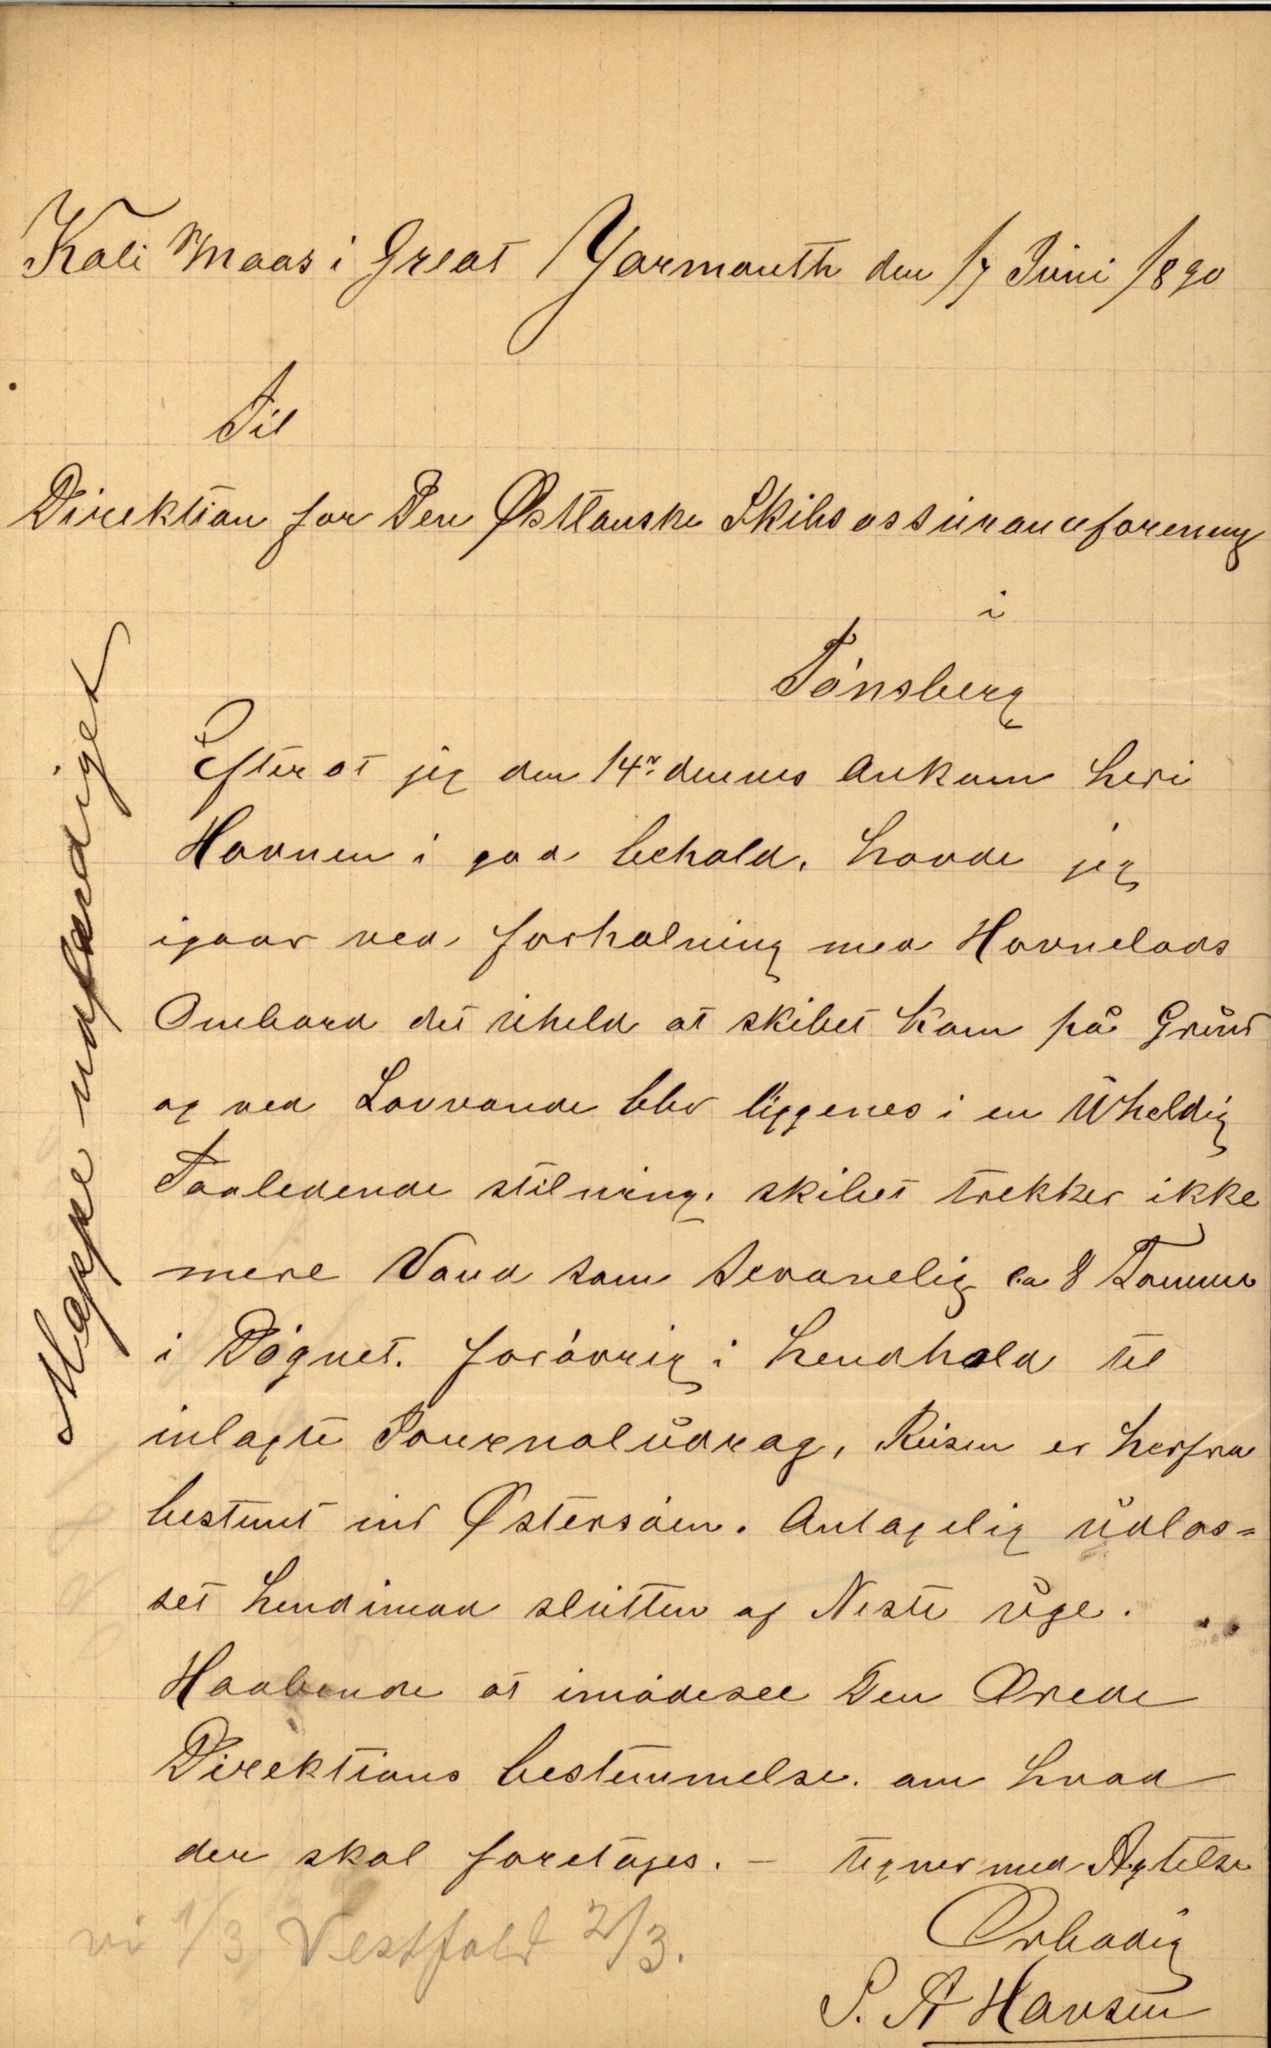 Kali Maas i Great Yarmouth den 17 Juni 1890
Til
Direktion for Den Østlanske Skibsassuranceforening
i
Tønsberg
Efter at jeg den 14de dennes Ankom heri
Havnen i god behold, havde jeg
igaar ved forhalning med Havnelods
Ombord det üheld at skibet kom på Gründ
og ved Lavvande blev liggenes i en Üheldig
stilning. skibet trekker ikke
mere Vand som sevanelig ca 8 Tommer
i Døgnet. forøvrig i hendhold til
inlagte Journalüdrag, Reisen er herfra
bestemt ind Østersøen. Antagelig üdlos=
set hendimod slütten af Neste üge.
Haabende at imødesee Den Ærede
Direktions bestemmelse. om hvad
der skal foretages. – tegner med Agtelse
Ærbødig
S. A Hansen
Mappe udfærdiget
vi 1/3 Vestfold 2/3.